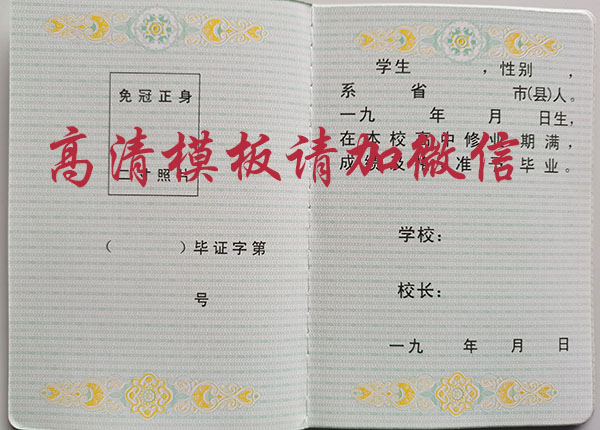 免冠正身
二寸照片
（　　　）毕证字第
号
学生　　　，性别　，
系　　省　　　市(县)人。
一九　　年　　月　　日生，
在本校高中修业期满，
成绩及格准予毕业。
学校：
校长：
一九　　年　　月　　日
高清模板请加微信